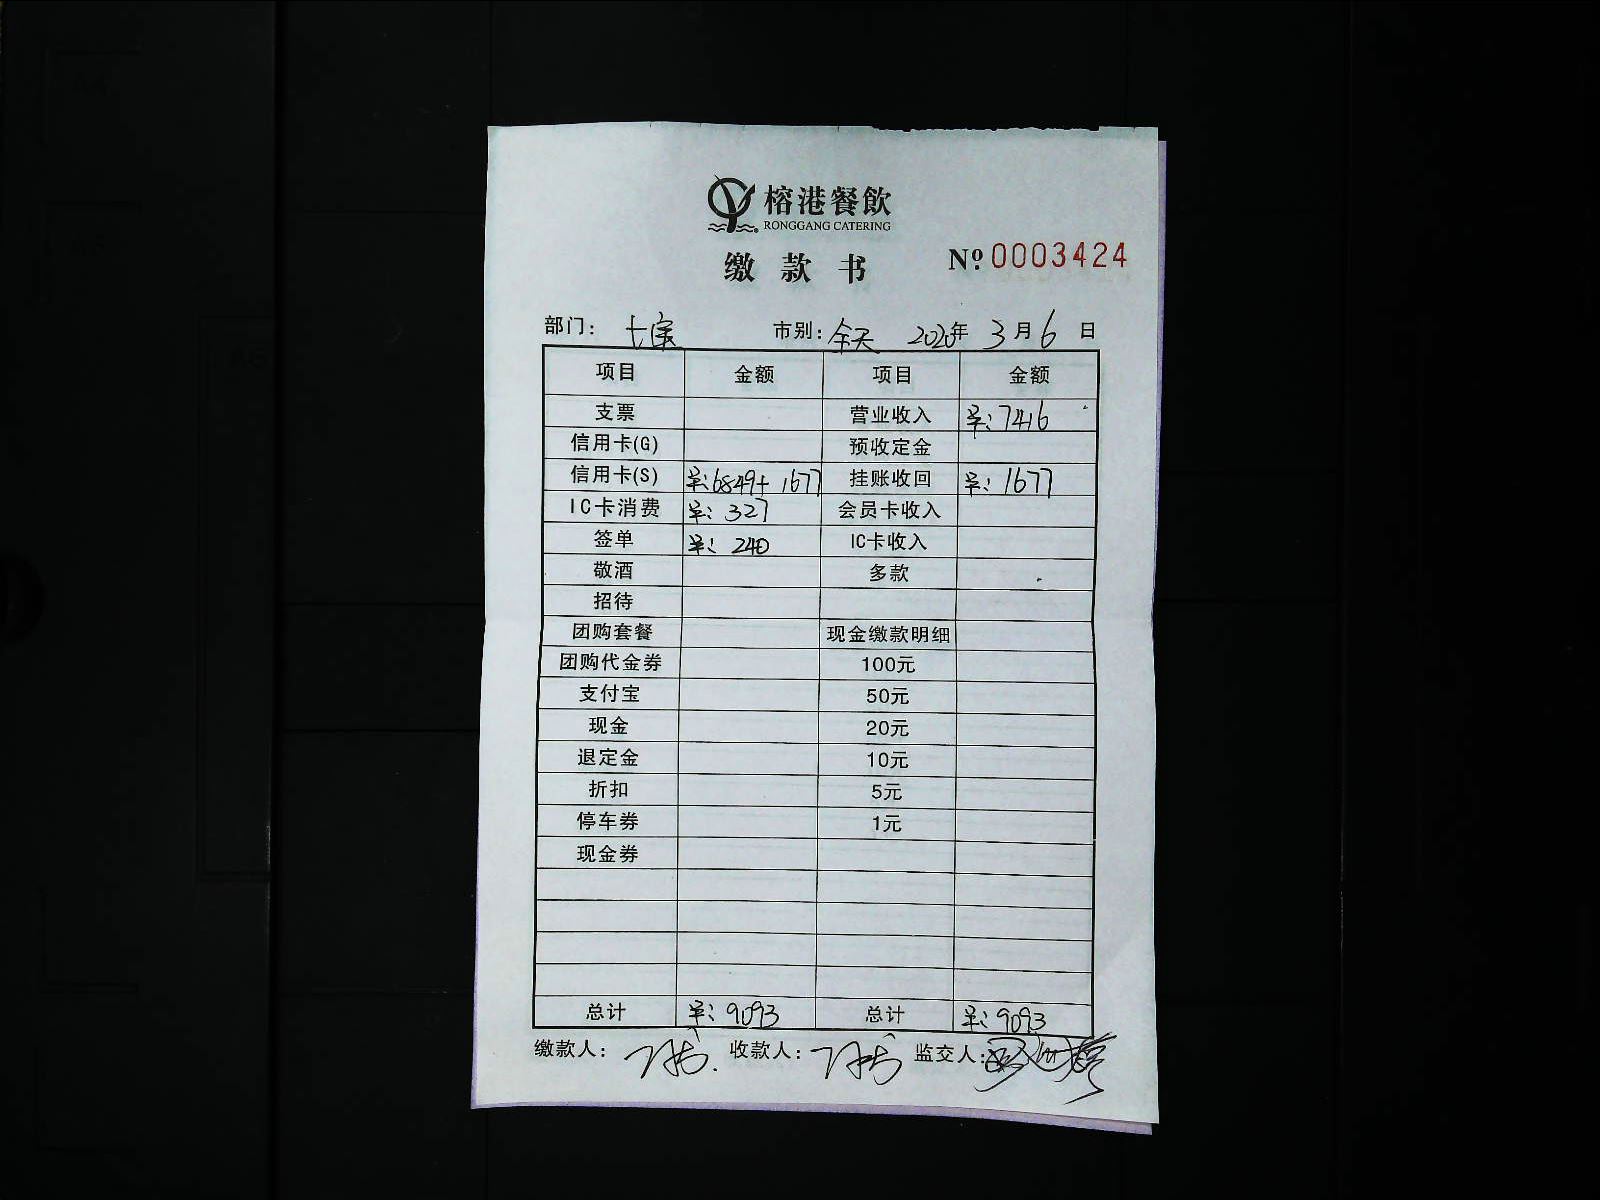 榕港餐飲
RONGGANG CATERING
缴款书 Nº 0003424
部门： 七宝 市别：全天 2020年 3月6日
项目 金额 项目 金额
支票 营业收入 单：7416
信用卡(G) 预收定金
信用卡(S) 单：6849+1677 挂账收回 单：1677
IC卡消费 单：327 会员卡收入
签单 单：240 IC卡收入
敬酒 多款
招待
团购套餐 现金缴款明细
团购代金券 100元
支付宝 50元
现金 20元
退定金 10元
折扣 5元
停车券 1元
现金券
总计 单：9093 总计 单：9093
缴款人： 收款人： 监交人：